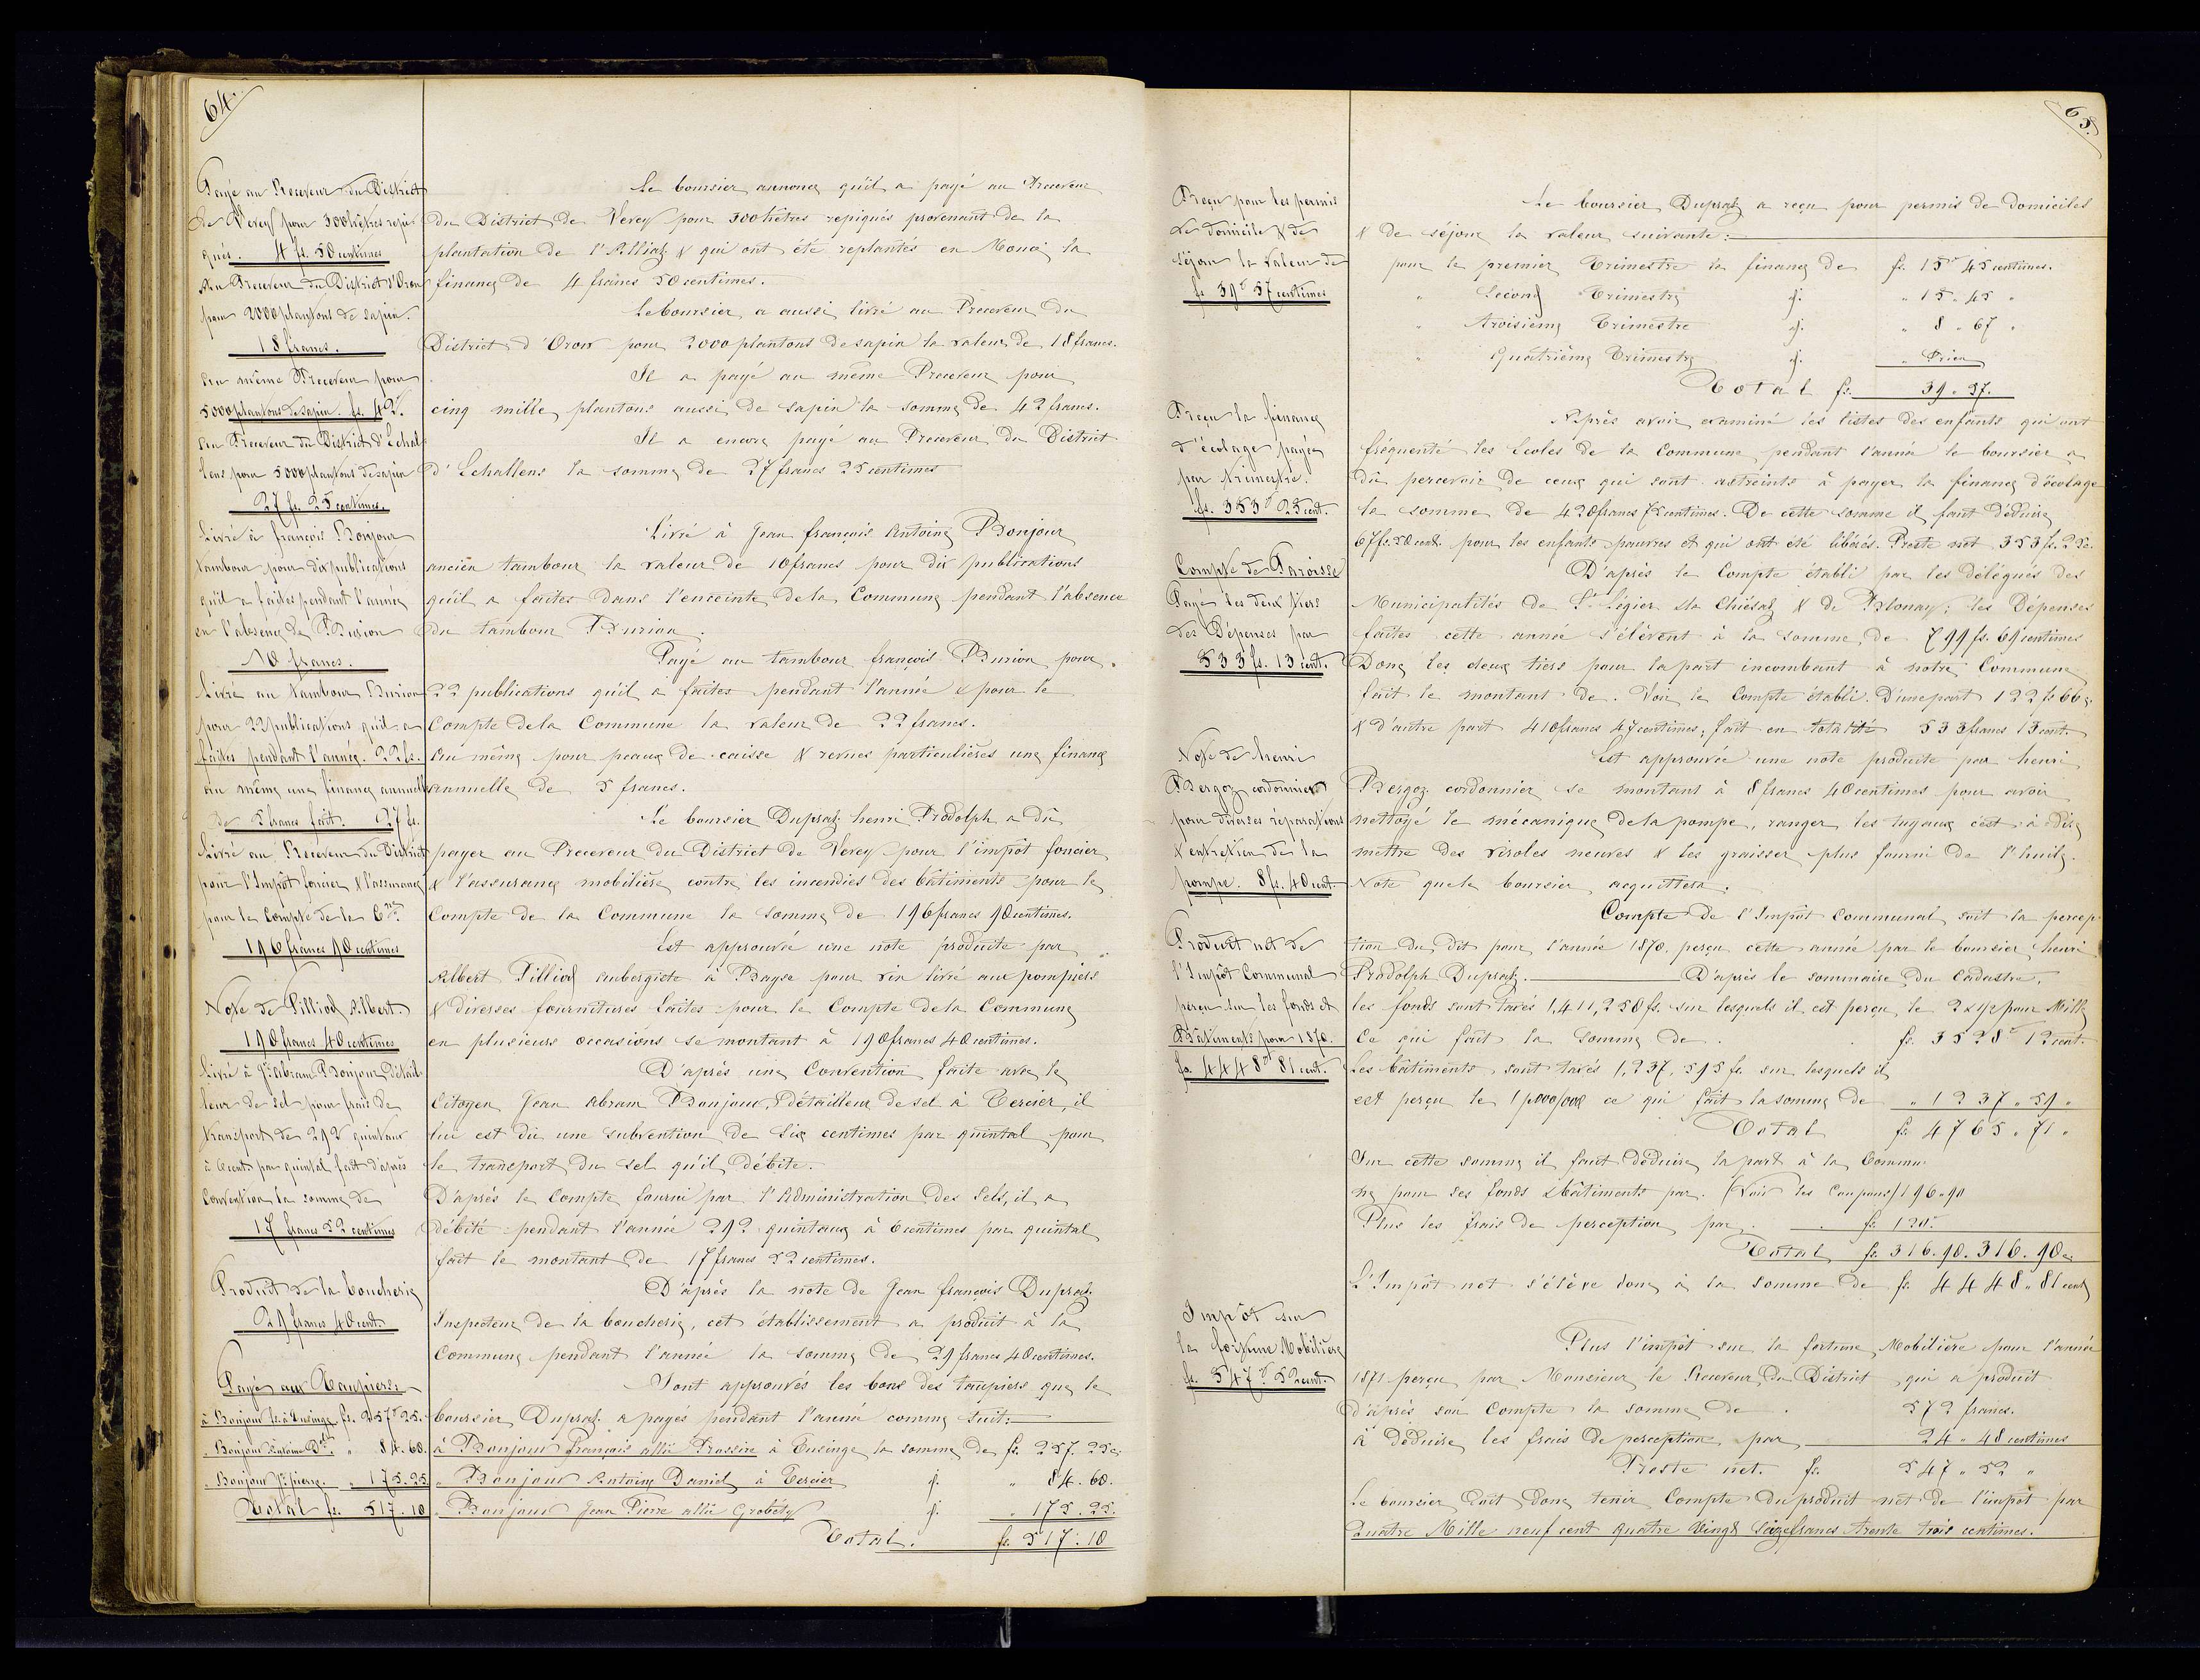 64.
Payé au Receveur du District
de Vevey pour 300 hêtres repi-
qués. 4 fs. 50 centimes
Au Receveur du District d'Oron
pour 2000 plantons de sapin.
18 francs.
Au même Receveur pour
5000 plantons de sapin. fs. 42.
Au Receveur du District d'Echal-
lens pour 5000 plantons de sapin
27 fs. 25 centimes.
Livré à françois Bonjour
tambour pour dix publications
qu'il a faites pendant l'année
en l'absence de Burion
10 francs.
Livré au tambour Burion
pour 22 publications qu'il a
faites pendant l'année. 22 fs.
Au même une finance annuelle
de 5 francs fait. 27 fs.
Livré au Receveur du District
pour l'Impôt foncier & l'assurance
pour le Compte de la Cne
196 francs 90 centimes
Note de Pilliod Albert.
190 francs 40 centimes
Livré à Jn Abram Bonjour Détail-
leur de sel pour frais de
transport de 292 quintaux
à 6 cent. par quintal fait d'après
Convention la somme de
17 francs 52 centimes
Produit de la boucherie
29 francs 40 cent.
Payé aux Taupiers
à Bonjour fs. à Tusinge fs. 257 25.
" Bonjour Antoine Dl. " 84.60.
" Bonjour Jn pierre. " 175.25
Total fs. 517.10
Le boursier annonce qu'il a payé au Receveur
du District de Vevey pour 300 hêtres repiqués provenant de la
plantation de l'Alliaz & qui ont été replantés en Monci la
finance de 4 francs 50 centimes.
Le boursier a aussi livré au Receveur du
District d'Oron pour 2000 plantons de sapin la valeur de 18 francs.
Il a payé au même Receveur pour
cinq mille plantons aussi de sapin la somme de 42 francs.
Il a encore payé au Receveur du District
d'Echallens la somme de 27 francs 25 centimes
Livré à Jean françois Antoine Bonjour
ancien tambour la valeur de 10 francs pour dix publications
qu'il a faites dans l'enceinte de la Commune pendant l'absence
du tambour Burion.
Payé au tambour françois Burion pour
22 publications qu'il a faites pendant l'année & pour le
Compte de la Commune la valeur de 22 francs.
Au même pour peaux de caisse & revues particulières une finance
annuelle de 5 francs.
Le boursier Dupraz henri Rodolph a dû
payer au Receveur du District de Vevey pour l'impôt foncier
& l'assurance mobilière contre les incendies des bâtiments pour le
Compte de la Commune la somme de 196 francs 90 centimes.
Est approuvée une note produite par
Albert Pilliod aubergiste à Bayse pour vin livré aux pompiers
& diverses fournitures faites pour le Compte de la Commune
en plusieurs occasions se montant à 190 francs 40 centimes.
D'après une Convention faite avec le
Citoyen Jean Abram Bonjour, détailleur de sel à Tercier, il
lui est dû une subvention de Six centimes par quintal pour
le transport du sel qu'il débite.
D'après le Compte fourni par l'Administration des Sels, il a
débité pendant l'année 292 quintaux à 6 centimes par quintal
fait le montant de 17 francs 52 centimes.
D'après la note de Jean françois Dupraz
Inspecteur de la boucherie, cet établissement a produit à la
Commune pendant l'année la somme de 29 francs 40 centimes.
Sont approuvés les bons des taupiers que le
boursier Dupraz a payés pendant l'année comme suit:
à Bonjour françois allié Rossire à Tusinge la somme de fs. 257. 25 c.
" Bonjour Antoine Daniel à Tercier d°. " 84.60.
" Bonjour Jean Pierre allié Grobéty d°. " 175.25.
Total. fs. 517.10
65.
Reçu pour les permis
de domicile & de
séjour la valeur de
fs 39 57 centimes
Reçu la finance
d'écolage payée
par trimestre.
fs. 353 25 cent.
Compte de Paroisse
Payé les deux tiers
des Dépenses par
533 fs. 13 cent.
Note de henri
Bergoz cordonnier
pour diverses réparations
& entretien de la
pompe. 8 fs. 40 cent.
Produit net de
l'Impôt Communal
perçu sur les fonds et
Bâtiments pour 1870.
fs. 4448 81 cent.
Impôt sur
la fortune Mobilière
fs. 547 52 cent.
Le boursier Dupraz a reçu pour permis de domiciles
& de séjour la valeur suivante:
pour le premier Trimestre la finance de fs. 15 45 centimes.
" Second Trimestre d°. " 15. 45 "
" troisième Trimestre d°. " 8 " 67 "
" Quatrième Trimestre d°. " Rien
Total fs. 39 " 57.
Après avoir examiné les listes des enfants qui ont
fréquenté les Ecoles de la Commune pendant l'année le boursier a
dû percevoir de ceux qui sont astreints à payer la finance d'écolage
la somme de 420 francs 75 centimes. De cette somme il faut déduire
67 fs. 50 cent. pour les enfants pauvres et qui ont été libérés. Reste net 353 fs. 25 c.
D'après le Compte établi par les délégués des
Municipalités de St Légier La Chiésaz & de Blonay; les Dépenses
faites cette année s'élèvent à la somme de 799 fs. 69 centimes
Donc les deux tiers pour la part incombant à notre Commune
fait le montant de. Voir le Compte établi. D'une part 122 fs 66 c.
& d'autre part 410 francs 47 centimes; fait en totalité 533 francs 13 cent.
Est approuvée une note produite par henri
Bergoz cordonnier se montant à 8 francs 40 centimes pour avoir
nettoyé le mécanique de la pompe, ranger les tuyaux c'est à dire
mettre des viroles neuves & les graisser plus fourni de l'huile.
Note que le boursier acquittera.
Compte de l'Impôt Communal soit la percep-
tion du dit pour l'année 1870. perçu cette année par le boursier henri
Rodolph Dupraz. D'après le sommaire du Cadastre,
les fonds sont taxés 1,411,250 fs. sur lesquels il est perçu le 2 & 1/2 pour Mille
Ce qui fait la Somme de fs. 3528 12 cent.
Les bâtiments sont taxés 1,237,595 fs. sur lesquels il
est perçu le 1 p.000/000 ce qui fait la somme de " 1237 " 59 "
Total fs. 4765 " 71 "
Sur cette somme il faut déduire la part à la Commu-
ne pour ses fonds & bâtiments par. (Voir les Coupons) 196 " 90
Plus les frais de perception par fs. 120.
Total fs. 316.90. 316.90 c.
L'Impôt net s'élève donc à la somme de fs. 4448 " 81 cent
Plus l'impôt sur la fortune Mobilière pour l'année
1871 perçu par Monsieur le Receveur du District qui a produit
d'après son Compte la somme de 572 francs.
à déduire les frais de perception par 24 " 48 centimes
Reste net. fs. 547 " 52 "
Le boursier doit donc tenir Compte du produit net de l'impôt par
Quatre Mille neuf cent quatre vingt Seize francs trente trois centimes.